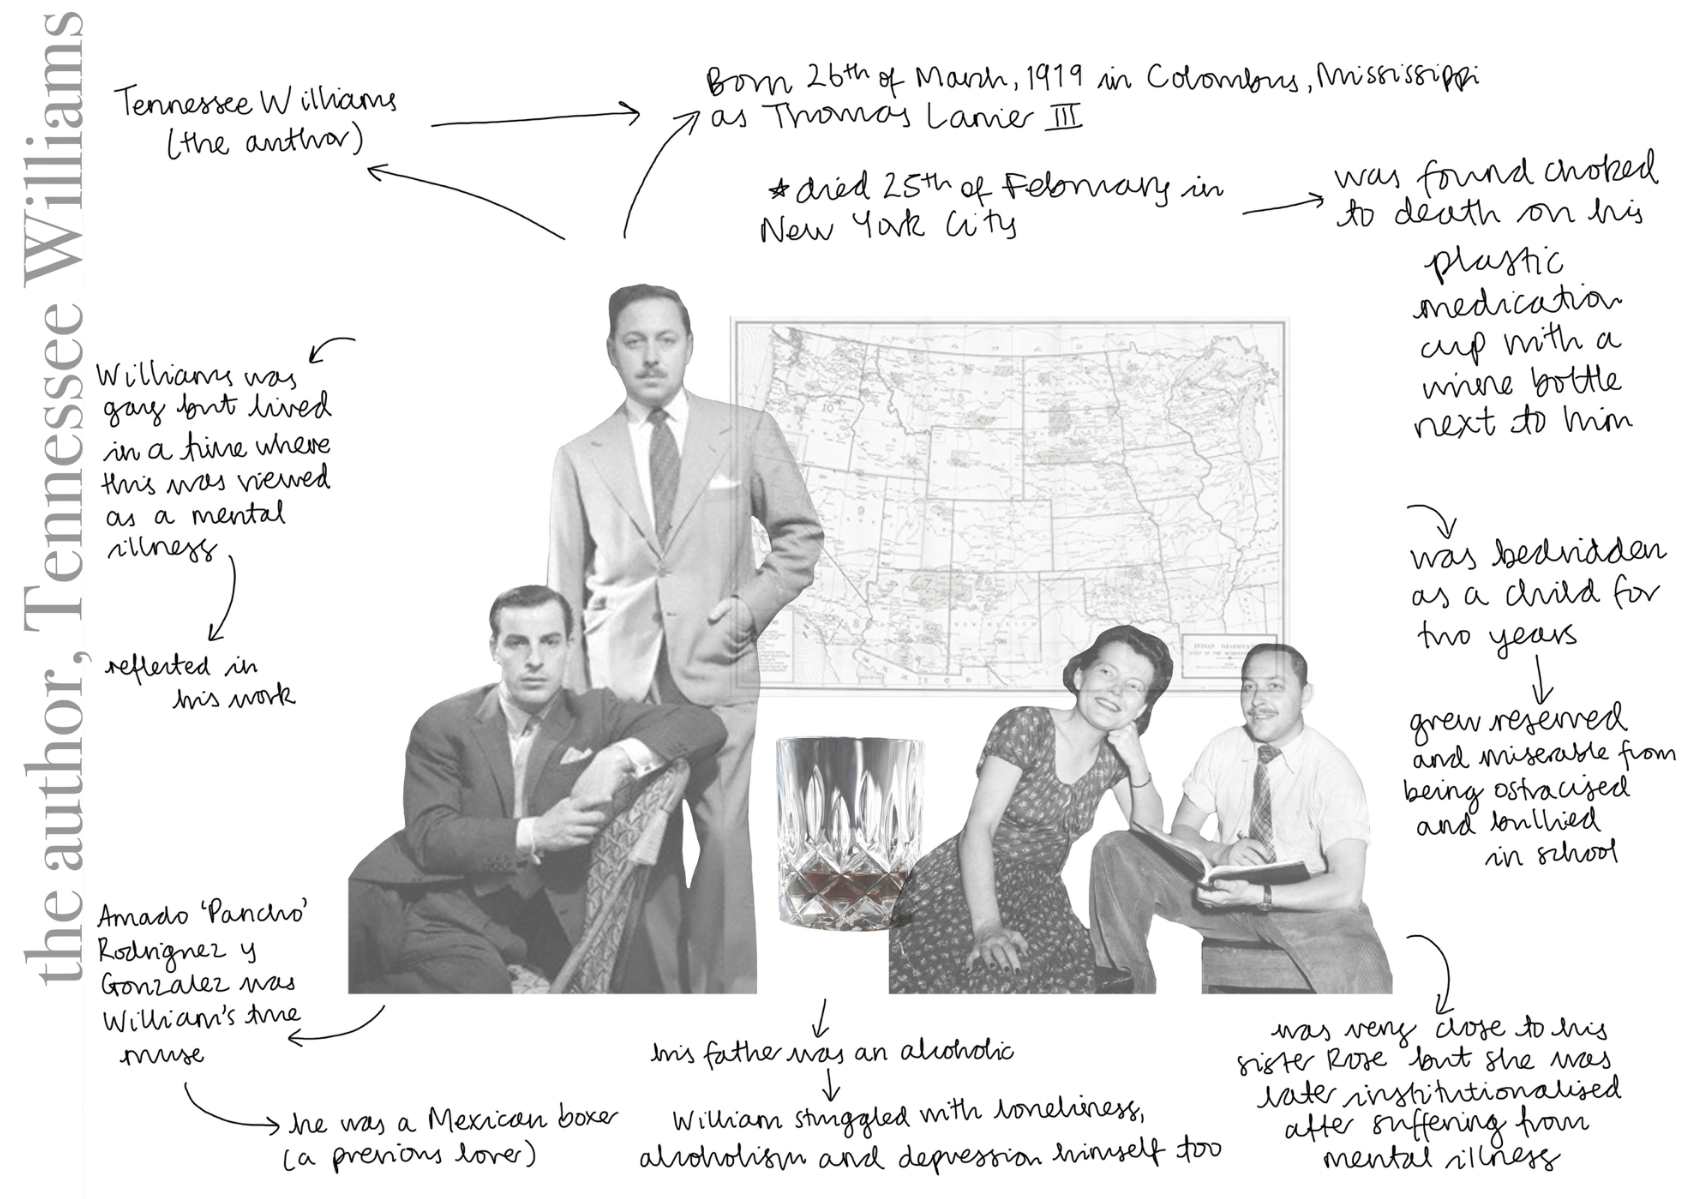 the author, Tennessee Williams
Tennessee Williams
(the author)
Born 26th of March, 1919 in Colombus, Mississippi
as Thomas Lanier III
*died 25th of February in
New York City
was found choked
to death on his
plastic
medication
cup with a
wine bottle
next to him
Williams was
gay but lived
in a time where
this was viewed
as a mental
illness
reflected in
his work
was bedridden
as a child for
two years
grew reserved
and miserable from
being ostracised
and bullied
in school
Amado 'Pancho'
Rodriguez y
Gonzalez was
William's true
muse
he was a Mexican boxer
(a previous lover)
his father was an alcoholic
William struggled with loneliness,
alcoholism and depression himself too
was very close to his
sister Rose but she was
later institutionalised
after suffering from
mental illness